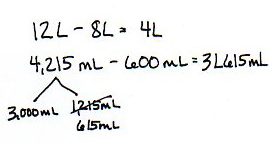 12L - 8L = 4L
4,215 mL - 600 mL = 3L615mL
3,000mL 1215mL
615mL